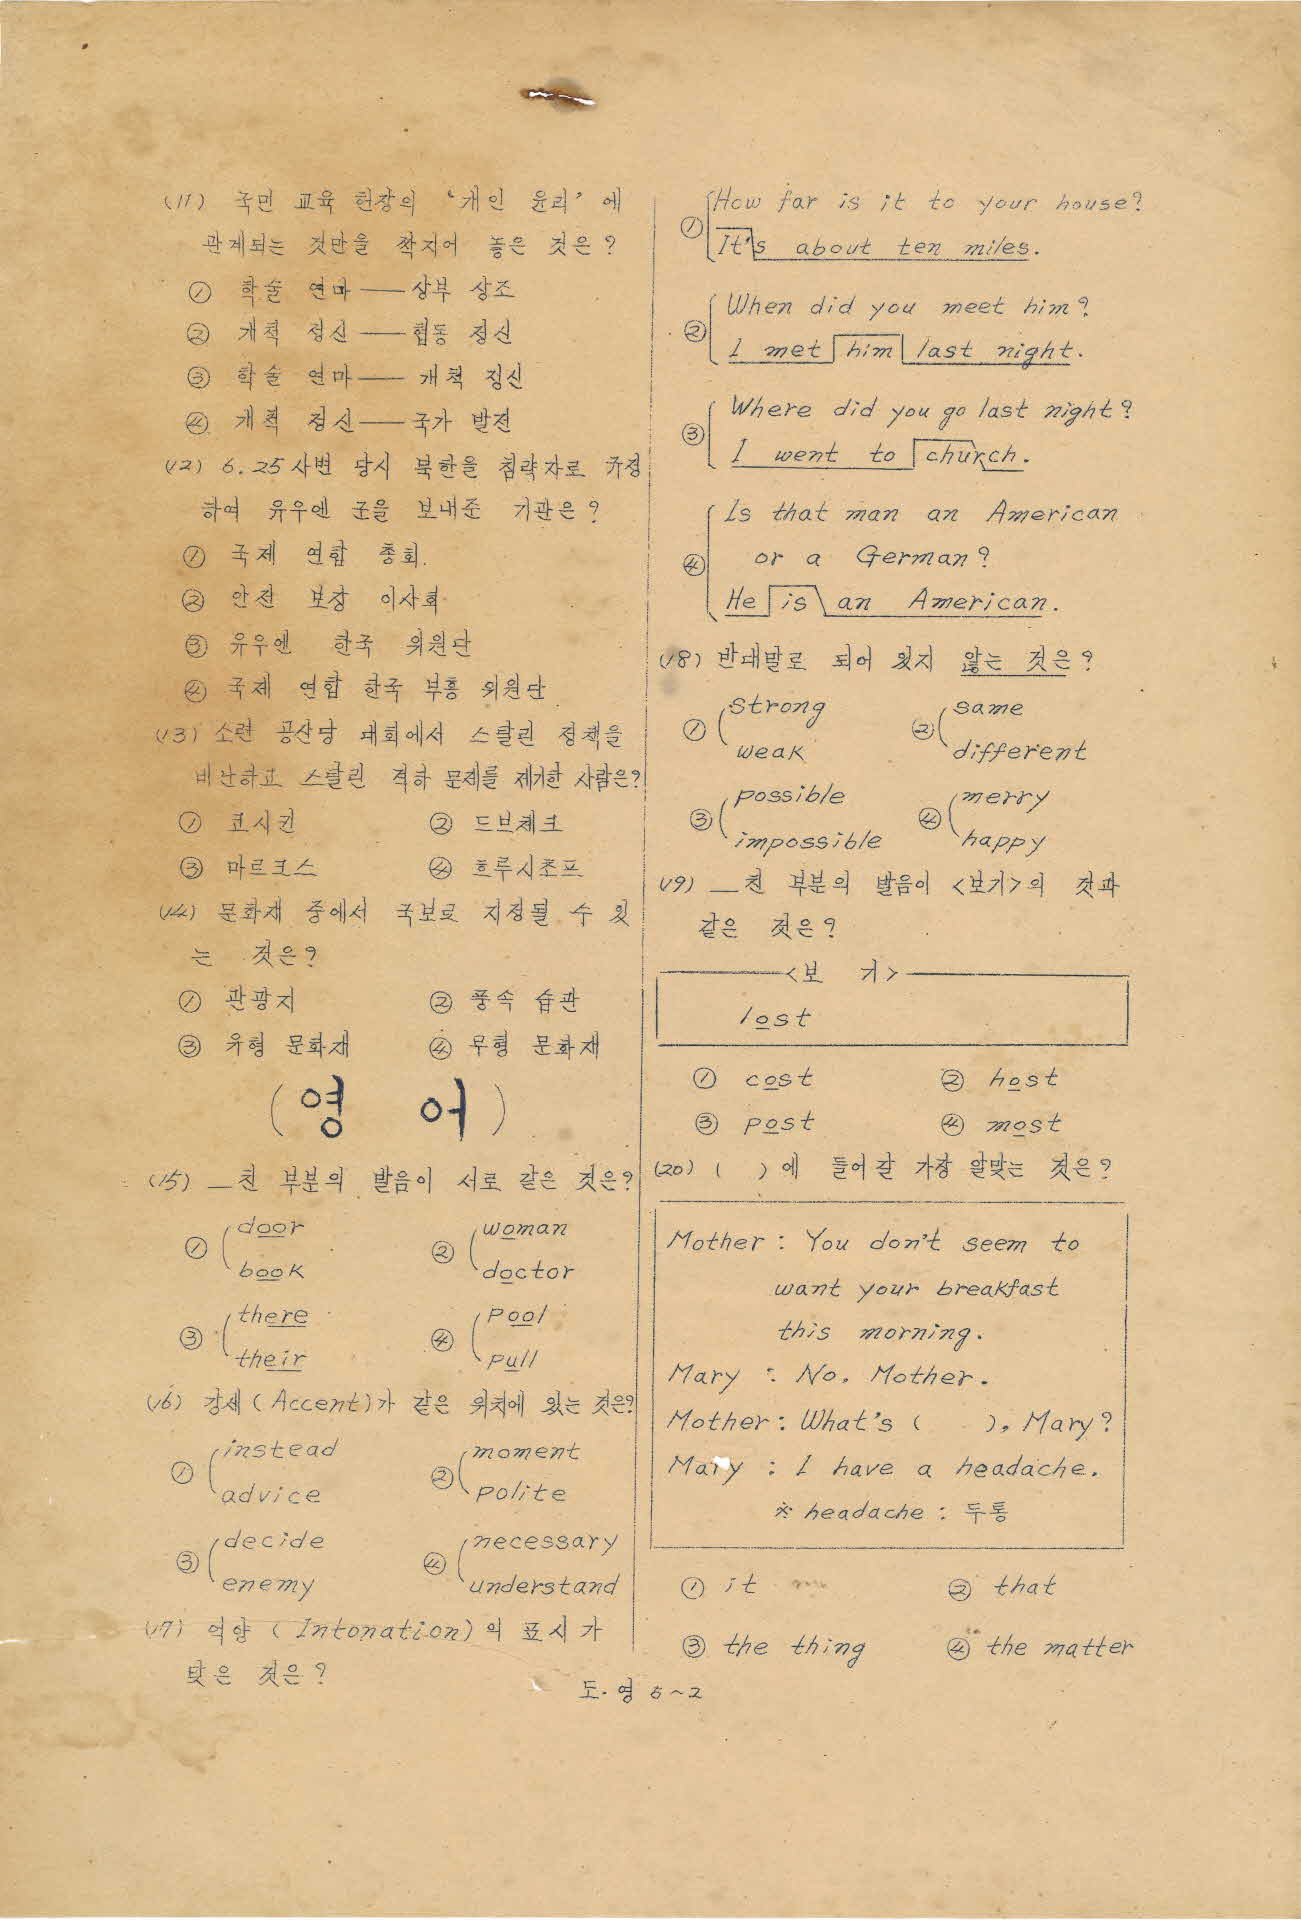 (11) 국민 교육 헌장의 '개인 윤리' 에
관계되는 것만을 짝지어 놓은 것은?
① 학술 연마 —— 상부 상조
② 개척 정신 —— 협동 정신
③ 학술 연마 —— 개척 정신
④ 개척 정신 —— 국가 발전
(12) 6.25 사변 당시 북한을 침략자로 규정
하여 유우엔 군을 보내준 기관은?
① 국제 연합 총회.
② 안전 보장 이사회
③ 유우엔 한국 위원단
④ 국제 연합 한국 부흥 위원단
(13) 소련 공산당 대회에서 스탈린 정책을
비난하고 스탈린 격하 문제를 제기한 사람은?
① 코시긴 ② 드브체크
③ 마르크스 ④ 흐루시초프
(14) 문화재 중에서 국보로 지정될 수 있
는 것은?
① 관광지 ② 풍속 습관
③ 유형 문화재 ④ 무형 문화재
(영 어)
(15) __친 부분의 발음이 서로 같은 것은?
① door ② woman
book doctor
③ there ④ pool
their pull
(16) 강세 (Accent)가 같은 위치에 있는 것은?
① instead ② moment
advice polite
③ decide ④ necessary
enemy understand
(17) 억양 (Intonation)의 표시가
맞은 것은?
① How far is it to your house?
It's about ten miles.
② When did you meet him?
I met him last night.
③ Where did you go last night?
I went to church.
④ Is that man an American
or a German?
He is an American.
(18) 반대말로 되어 있지 않는 것은?
① strong ② same
weak different
③ possible ④ merry
impossible happy
(19) __친 부분의 발음이 <보기>의 것과
같은 것은?
<보 기>
lost
① cost ② host
③ post ④ most
(20) ( )에 들어갈 가장 알맞는 것은?
Mother : You don't seem to
want your breakfast
this morning.
Mary : No. Mother.
Mother : What's ( ), Mary?
Mary : I have a headache.
※ headache : 두통
① it ② that
③ the thing ④ the matter
도·영 5~2